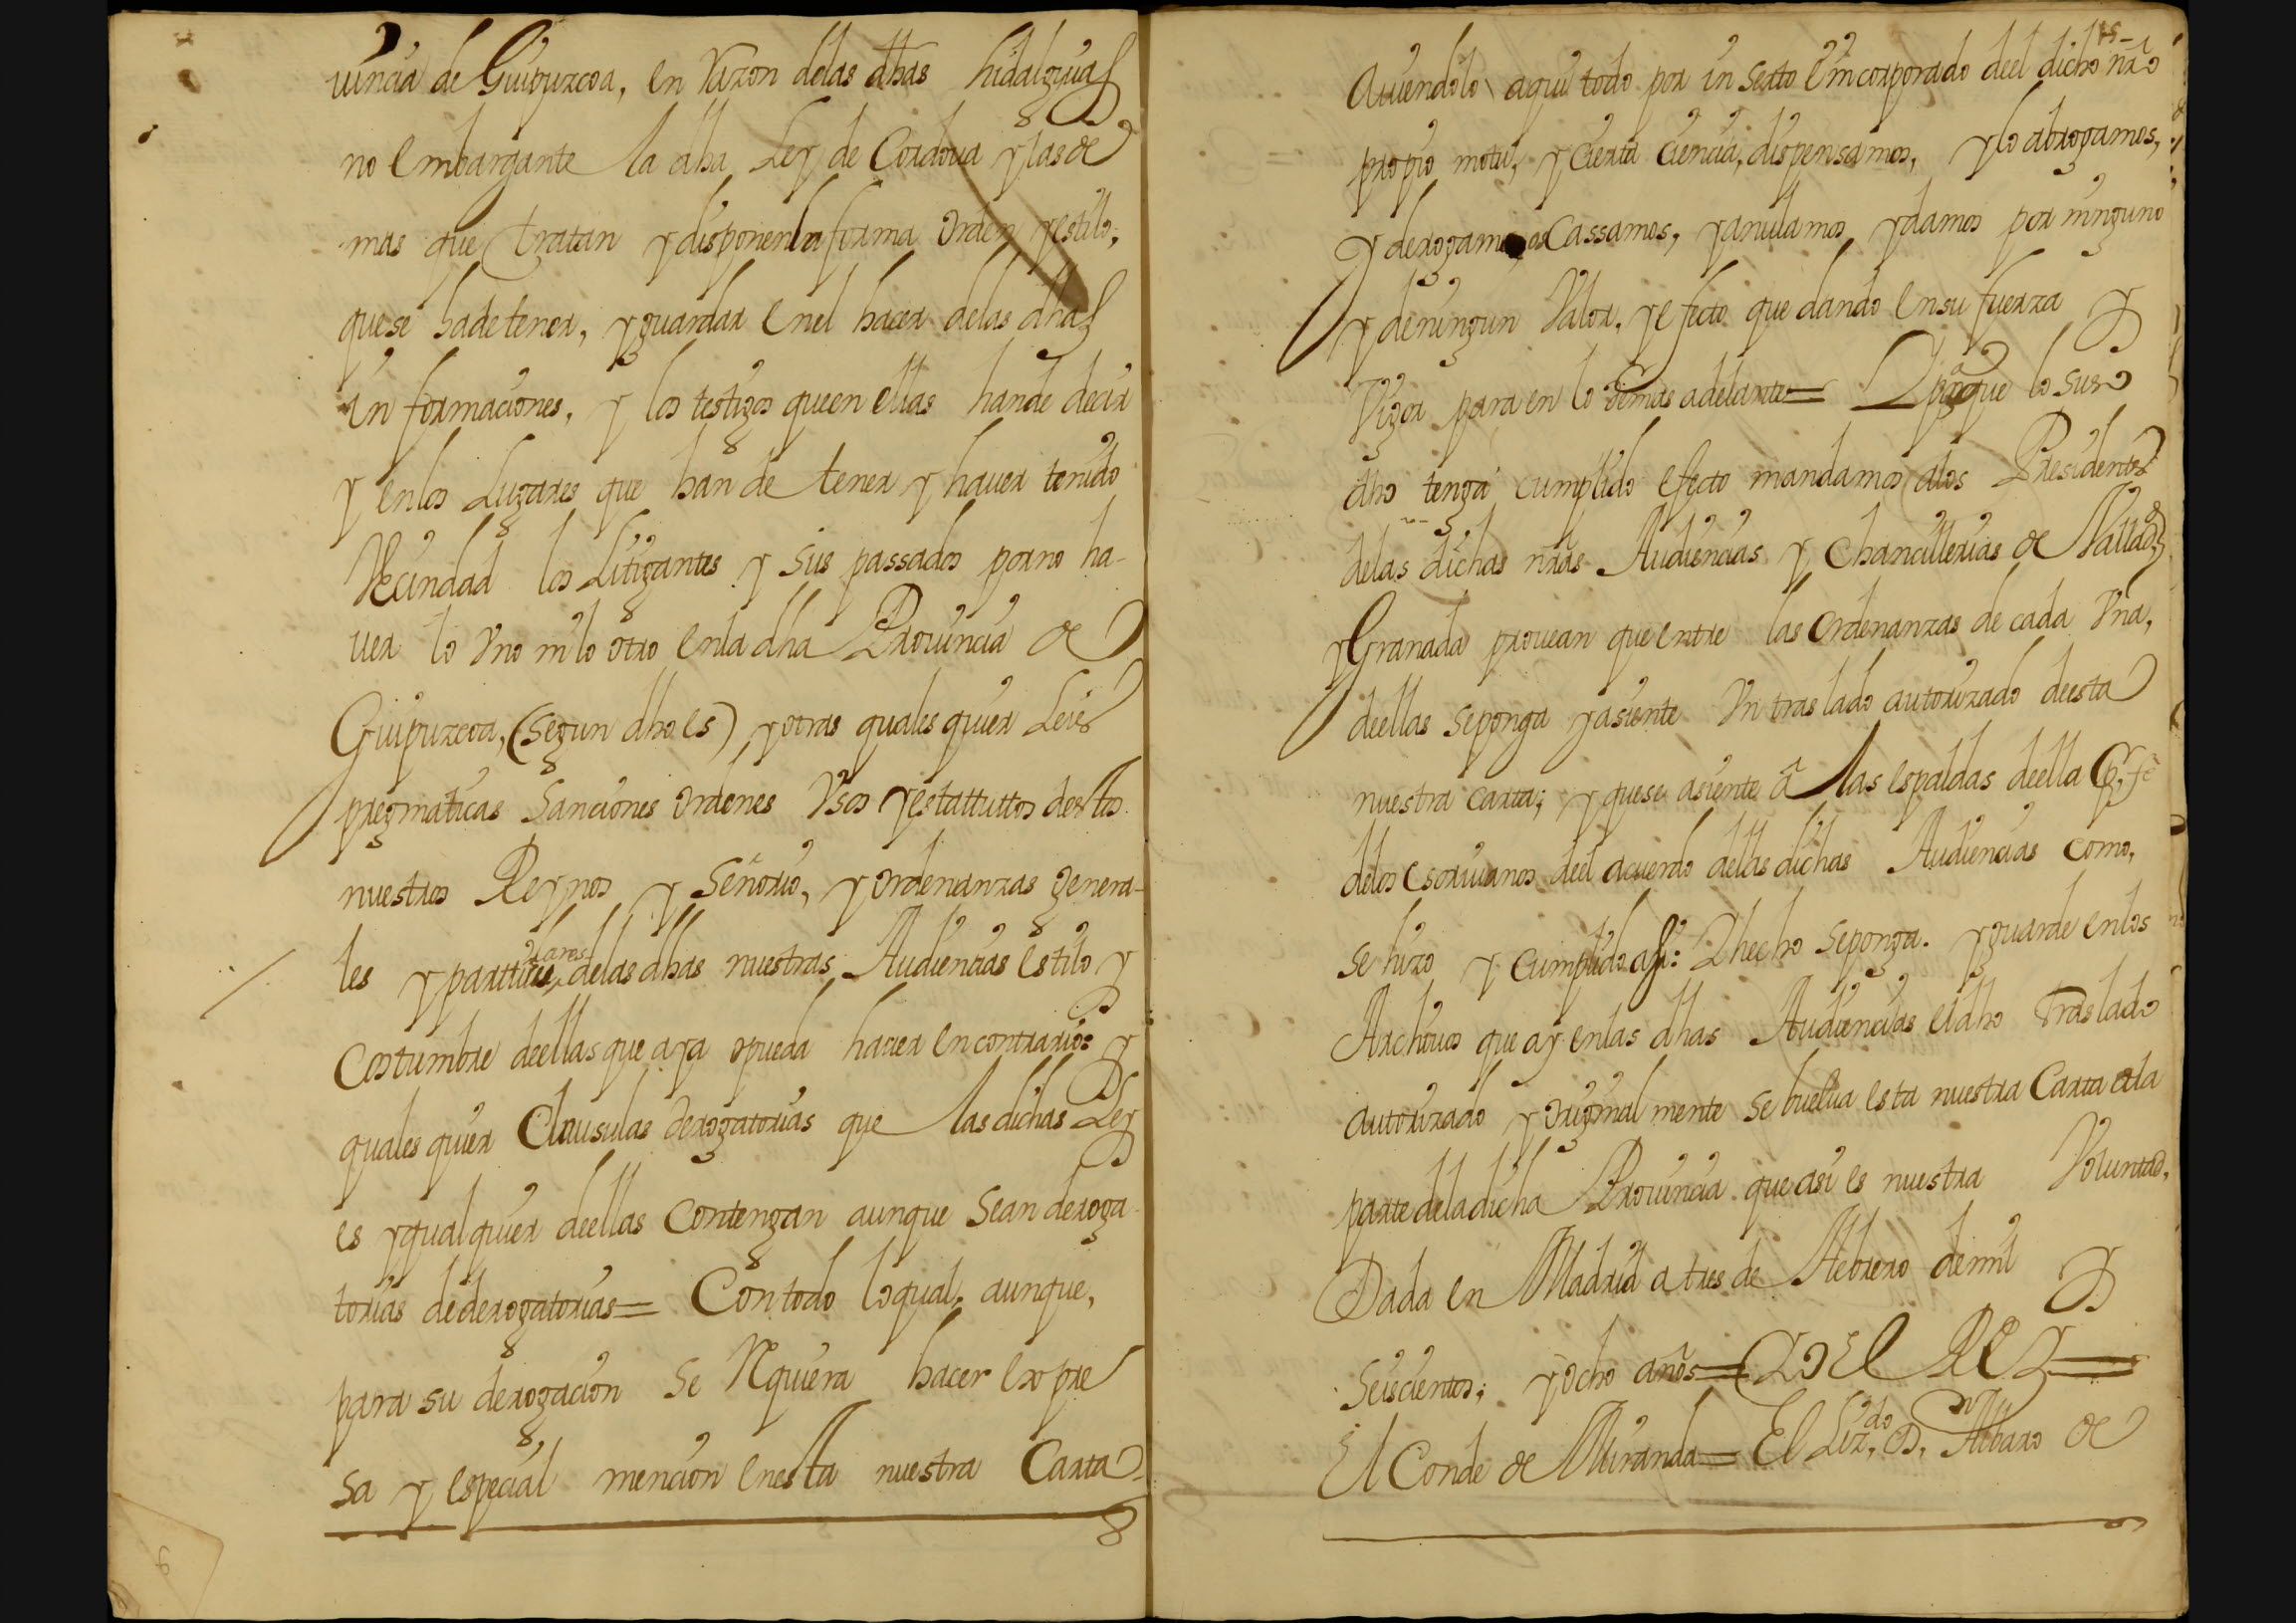 uincia de Guipuzcoa, en Razon delas dhas hidalguias
no embargante la dha Ley de Cordoua ylas de
mas que tratan ydisponen la forma orden yestilo,
quese hade tener, yguardar enel hacer delas dhas
in formaciones, y los testigos queen ellas hande decir
y enlos Lugares que han de tener y hauer tenido
Vecindad los Litigantes y sus passados porno ha-
uer lo Vno nilo otro enla dha Prouincia de
Guipuzcoa, (segun dho es) yotras quales quier Leies
pregmaticas Sanciones ordenes Vsos yestattuttos destos
nuestros Reynos y Señorio, yordenanzas genera-
les yparticulares delas dhas nuestras Audiencias estilo y
Costumbre deellas que aya opueda hauer en contrario: y
quales quier Clausulas derogatorias que las dichas Ley
es yqual quier deellas Contengan aunque Sean deroga
torias dederogatorias= Con todo loqual, aunque,
para su derogacion se Requiera hacer expre
sa y especial mencion enesta nuestra Carta
15
Auiendolo aqui todo por in serto Eincorporado deel dicho nro
propio motu, y cierta ciencia, dispensamos, ylo abrogamos,
y derogamos, Cassamos, yanulamos ydamos por ninguno
y deningun Valor, ye fecto que dando Ensu fuerza y
Vigor para en lo demas adelante= Y paraque lo suso
dho tenga cumplido efecto mandamos alos Presidentes
delas dichas nras Audiencias y Chancillerias de Vallad
yGranada prouean que entre las ordenanzas de cada Vna,
deellas seponga yasiente Vn tras lado autorizado deesta
nuestra carta; yquese asiente â las espaldas deella fe
delos escriuanos deel acuerdo dellas dichas Audiencias como,
se hizo y cumplido asi: Y hecho seponga. yguarde enlos
Archiuos que ay enlas dhas Audiencias eldho traslado
autorizado y original mente se buelua esta nuestra Carta ala
parte deladicha Prouincia que asi es nuestra Voluntad,
Dada en Madrid a tres de Hebrero demil y
seiscientos; yocho años= YO El REY=
El Conde de Miranda= El Liz,do D. Albaro de